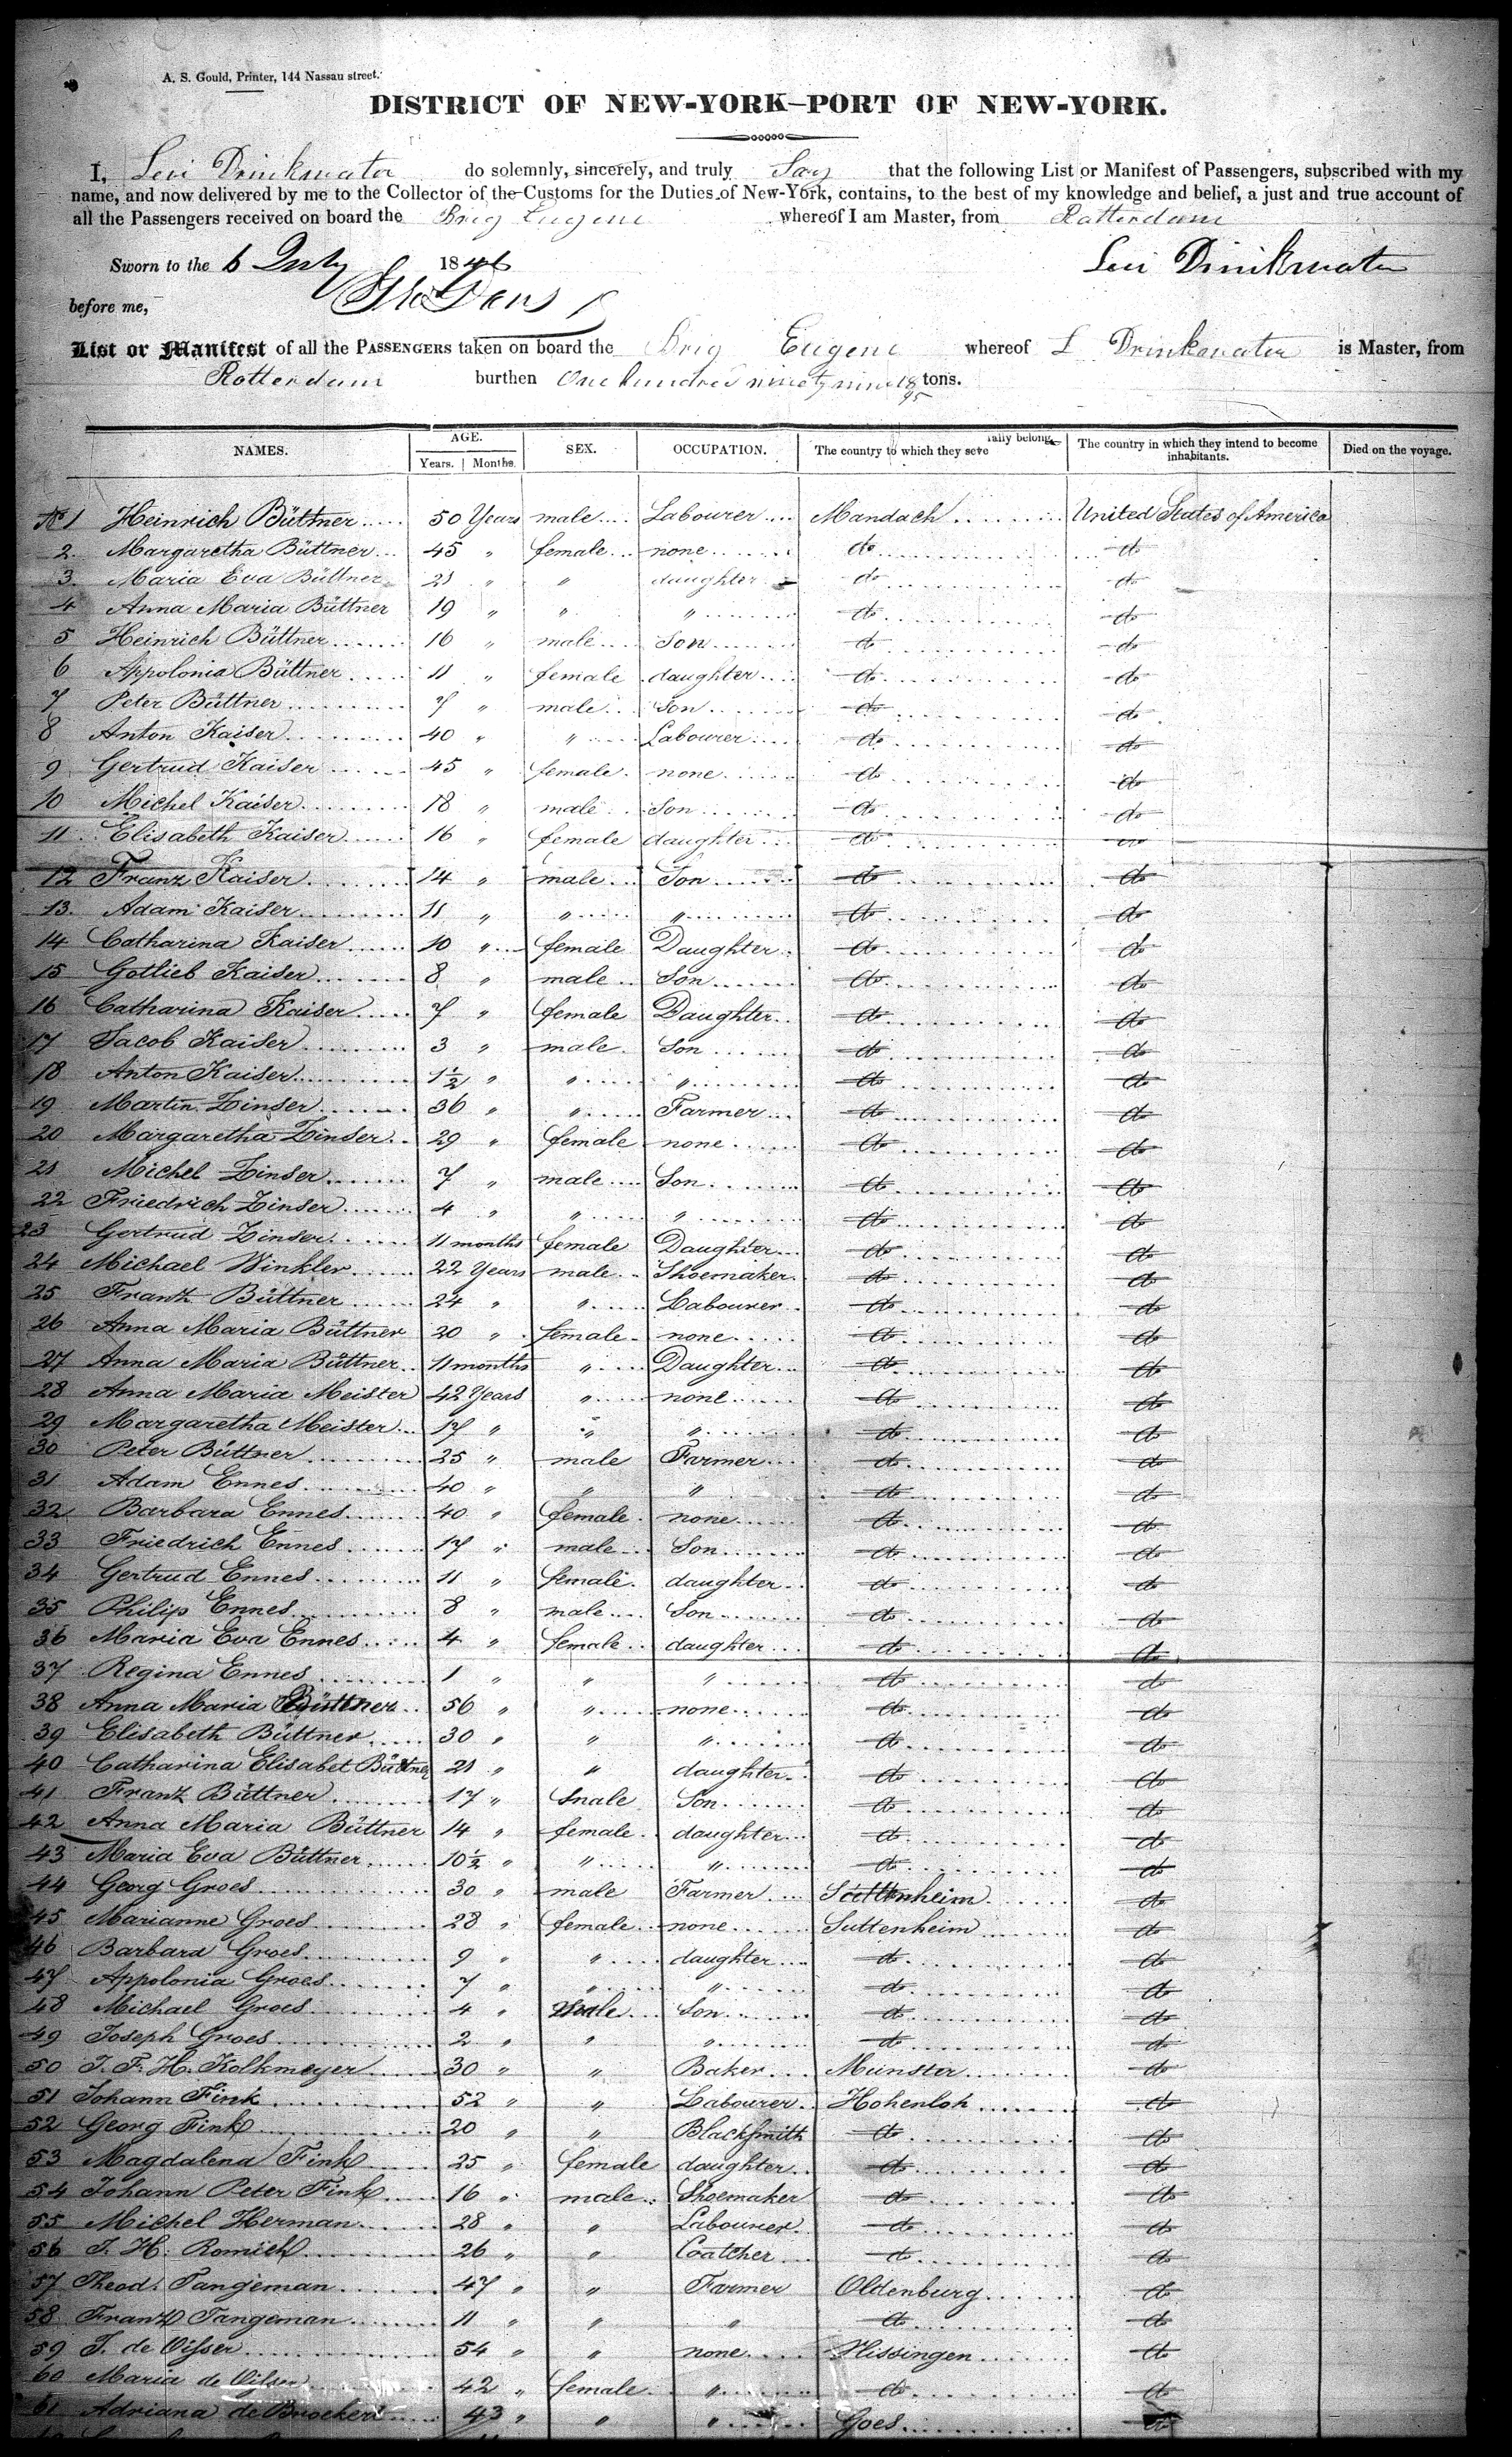 A. S. Gould, Printer, 144 Nassau street.
DISTRICT OF NEW-YORK—PORT OF NEW-YORK.
I, Levi Drinkwater do solemnly, sincerely, and truly Say that the following List or Manifest of Passengers, subscribed with my
name, and now delivered by me to the Collector of the Customs for the Duties of New-York, contains, to the best of my knowledge and belief, a just and true account of
all the Passengers received on board the Brig Eugene whereof I am Master, from Rotterdam
Sworn to the 6 July 1846 Levi Drinkwater
before me,
List or Manifest of all the PASSENGERS taken on board the Brig Eugene whereof L Drinkwater is Master, from
Rotterdam burthen One hundred ninety nine 18/95 tons.
NAMES. AGE. Years. Months. SEX. OCCUPATION. The country to which they seve rally belong. The country in which they intend to become inhabitants. Died on the voyage.
No 1 Heinrich Büttner 50 Years male Labourer Mandach United States of America
2. Margaretha Büttner 45 " female none do do
3. Maria Eva Büttner 21 " " daughter do do
4 Anna Maria Büttner 19 " " " do do
5 Heinrich Büttner 16 " male Son do do
6 Appolonia Büttner 11 " female daughter do do
7 Peter Büttner 7 " male Son do do
8 Anton Kaiser 40 " " Labourer do do
9 Gertrud Kaiser 45 " female none do do
10 Michel Kaiser 18 " male Son do do
11 Elisabeth Kaiser 16 " female daughter do do
12 Franz Kaiser 14 " male Son do do
13. Adam Kaiser 11 " " " do do
14 Catharina Kaiser 10 " female Daughter do do
15 Gotlieb Kaiser 8 " male Son do do
16 Catharina Kaiser 7 " female Daughter do do
17 Jacob Kaiser 3 " male Son do do
18 Anton Kaiser 1½ " " " do do
19 Martin Zinser 36 " " Farmer do do
20 Margaretha Zinser 29 " female none do do
21 Michel Zinser 7 " male Son do do
22 Friedrich Zinser 4 " " " do do
23 Gertrud Zinser 11 months female Daughter do do
24 Michael Winkler 22 Years male Shoemaker do do
25 Frantz Büttner 24 " " Labourer do do
26 Anna Maria Büttner 20 " female none do do
27 Anna Maria Büttner 11 months " Daughter do do
28 Anna Maria Meister 42 Years " none do do
29 Margaretha Meister 17 " " " do do
30 Peter Büttner 25 " male Farmer do do
31 Adam Ennes 40 " " " do do
32 Barbara Ennes 40 " female none do do
33 Friedrich Ennes 17 " male Son do do
34 Gertrud Ennes 11 " female daughter do do
35 Philip Ennes 8 " male Son do do
36 Maria Eva Ennes 4 " female daughter do do
37 Regina Ennes 1 " " " do do
38 Anna Maria Büttner 56 " " none do do
39 Elisabeth Büttner 30 " " " do do
40 Catharina Elisabet Büttner 21 " " daughter do do
41 Frantz Büttner 17 " male Son do do
42 Anna Maria Büttner 14 " female daughter do do
43 Maria Eva Büttner 10½ " " " do do
44 Georg Groes 30 " male Farmer Suttenheim do
45 Marianne Groes 28 " female none Suttenheim do
46 Barbara Groes 9 " " daughter do do
47 Appolonia Groes 7 " " " do do
48 Michael Groes 4 " male Son do do
49 Joseph Groes 2 " " " do do
50 J. F. H. Kolkmeyer 30 " " Baker Munster do
51 Johann Fink 52 " " Labourer Hohenloh do
52 Georg Fink 20 " " Blacksmith do do
53 Magdalena Fink 25 " female daughter do do
54 Johann Peter Fink 16 " male Shoemaker do do
55 Michel Herman 28 " " Labourer do do
56 J. H. Romich 26 " " Coatcher do do
57 Theod. Tangeman 47 " " Farmer Oldenburg do
58 Frantz Tangeman 11 " " " do do
59 J. de Visser 54 " " none Vlissingen do
60 Maria de Visser 42 " female " do do
61 Adriana de Broekert 43 " " " Goes do